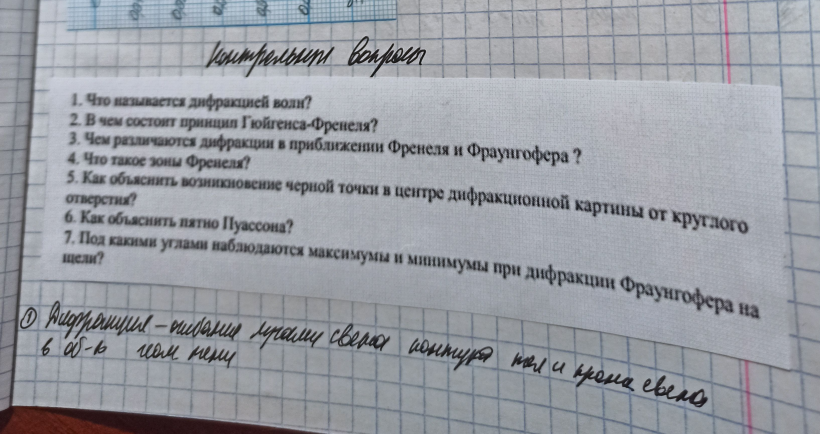 Контрольные вопросы
1. Что называется дифракцией волн?
2. В чем состоит принцип Гюйгенса-Френеля?
3. Чем различаются дифракции в приближении Френеля и Фраунгофера ?
4. Что такое зоны Френеля?
5. Как объяснить возникновение черной точки в центре дифракционной картины от круглого
отверстия?
6. Как объяснить пятно Пуассона?
7. Под какими углами наблюдаются максимумы и минимумы при дифракции Фраунгофера на
щели?
① Дифракция – огибание лучами света контура тел и прон. света
в об-ь геом тени